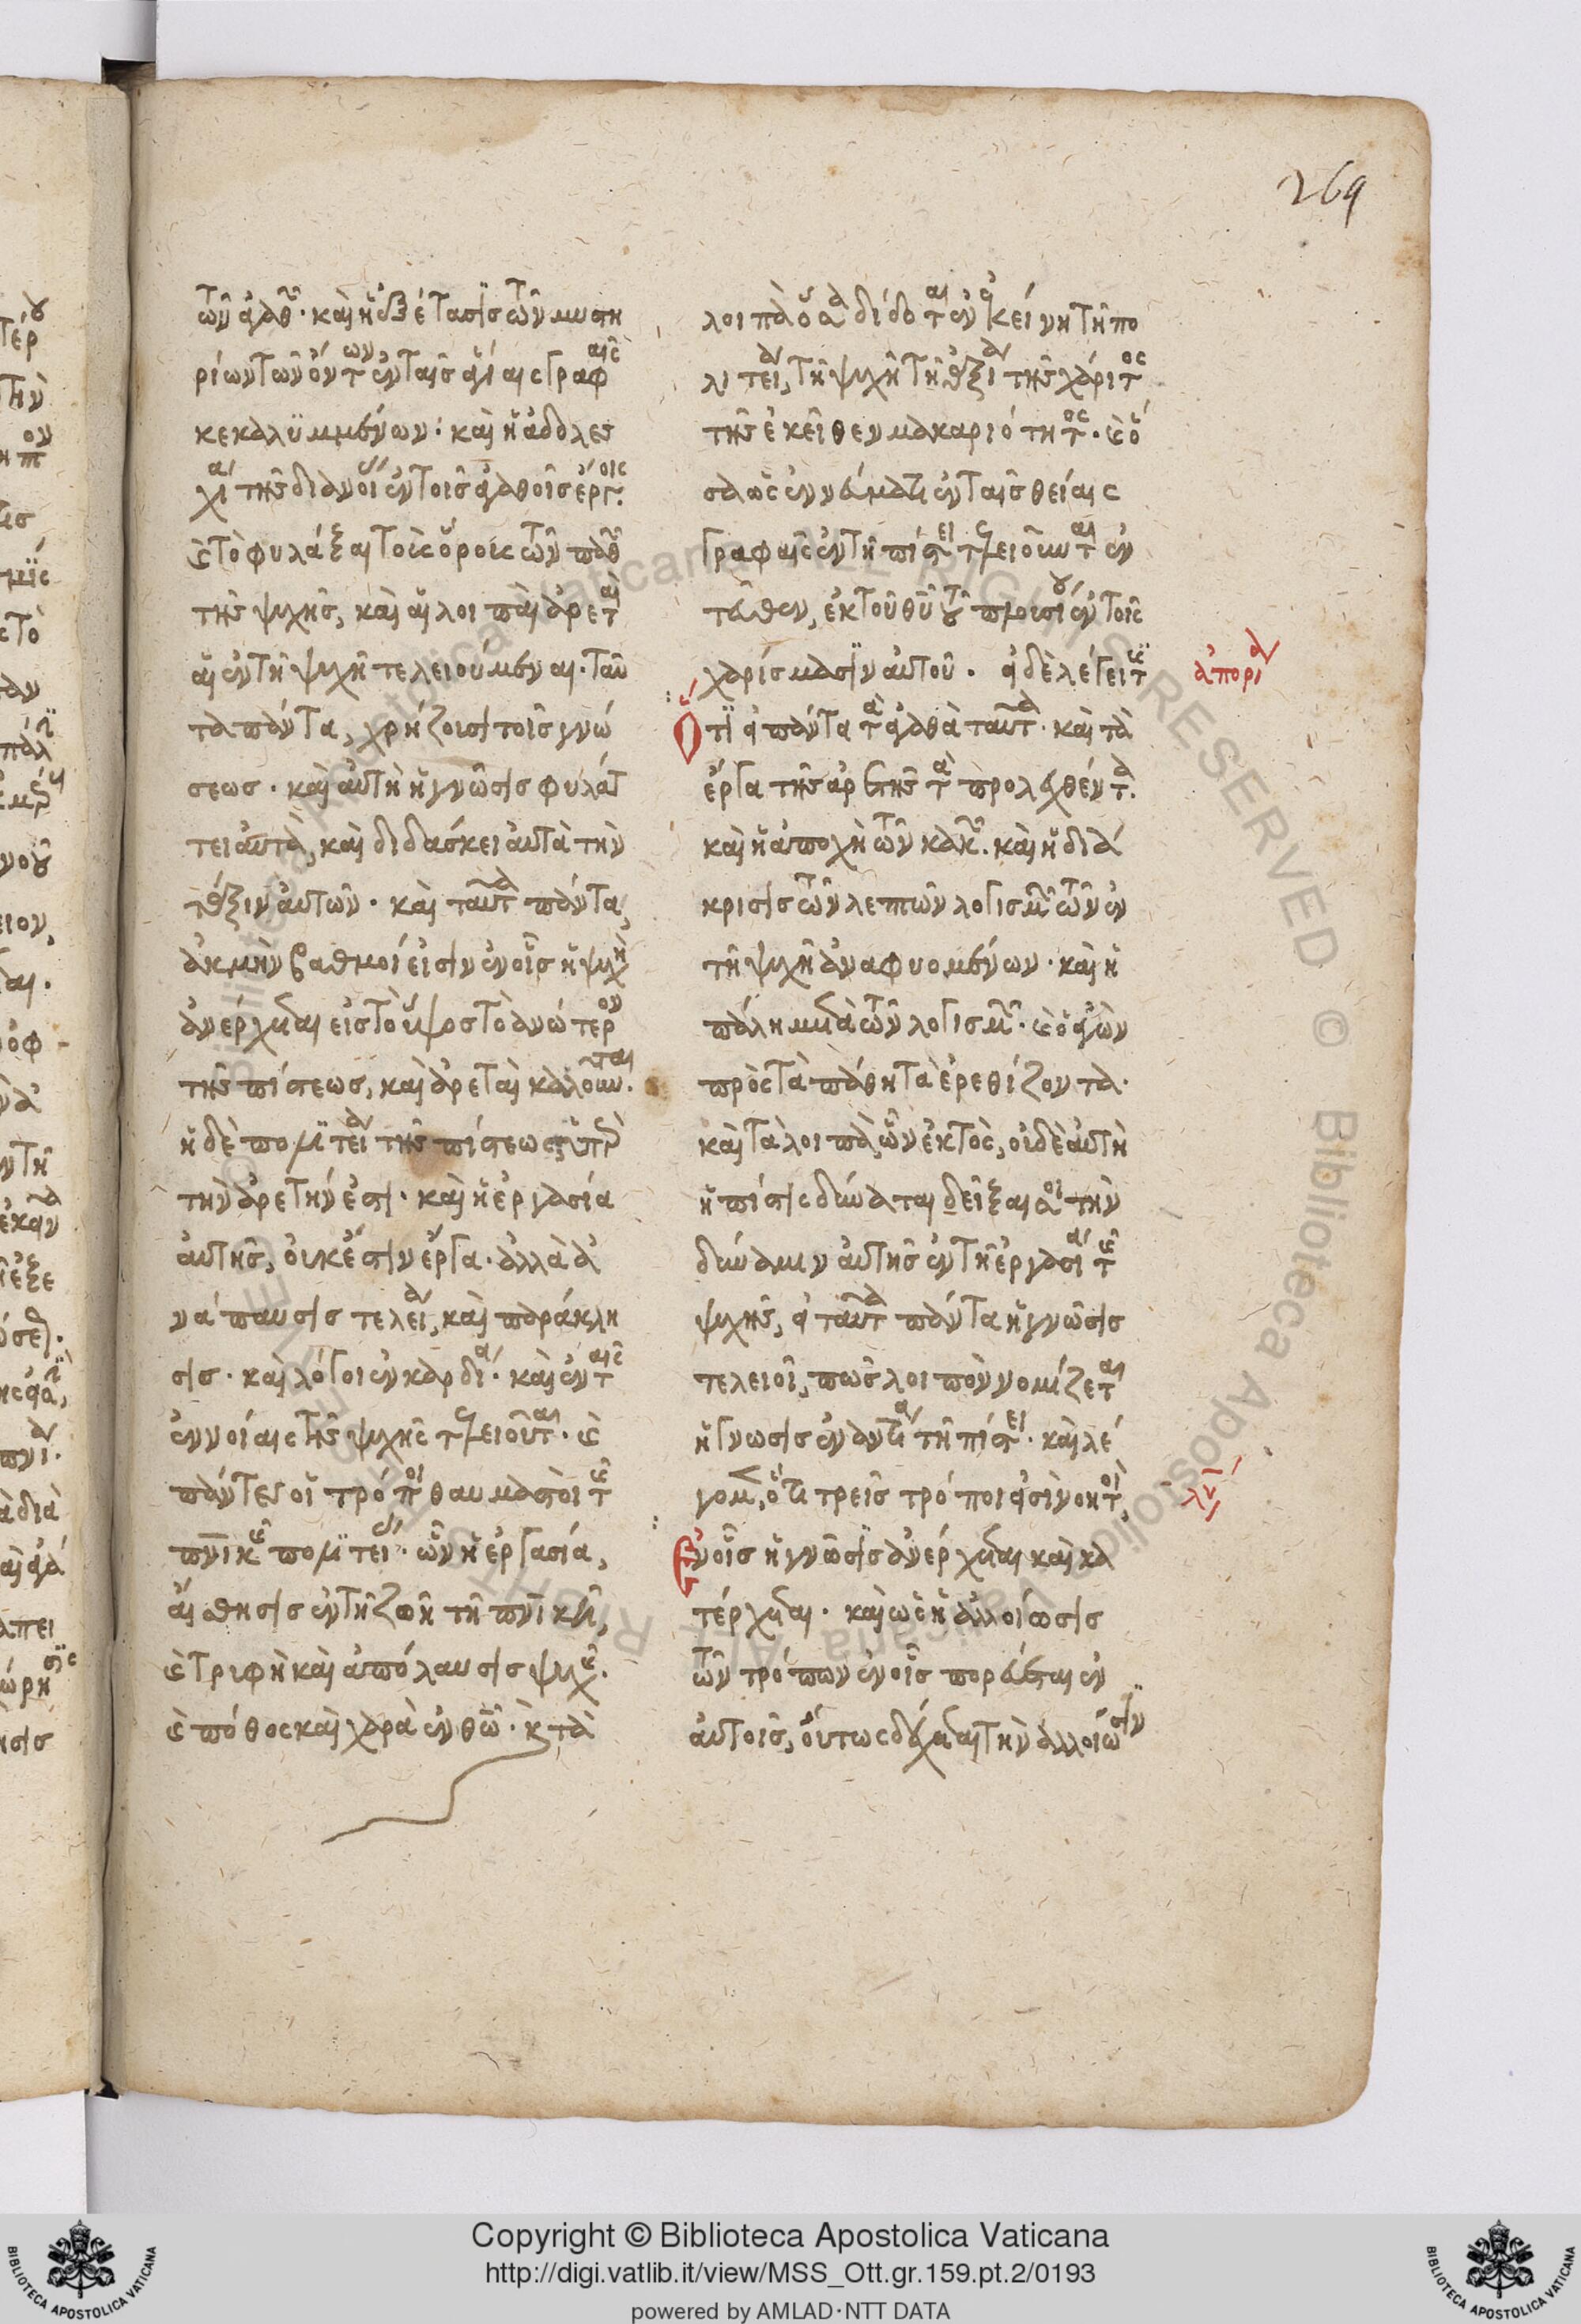 269
τῶν ἀγαθῶν· καὶ ἡ ἐξέτασις τῶν μυστη
ρίων τῶν ὄντων ἐν ταῖς ἁγίαις γραφαῖς
κεκαλυμμένων· καὶ ἡ ἀδολεσ
χία τῆς διανοίας ἐν τοῖς ἀγαθοῖς ἔργοις.
καὶ τὸ φυλάξαι τοὺς ὅρους τῶν παθῶν
τῆς ψυχῆς, καὶ αἱ λοιπαὶ ἀρεταὶ
αἱ ἐν τῇ ψυχῇ τελειούμεναι. ταῦ
τα πάντα, χρῄζουσι τῆς γνώ
σεως. καὶ αὐτὴ ἡ γνῶσις φυλάτ
τει αὐτά, καὶ διδάσκει αὐτὰ τὴν
τάξιν αὐτῶν. καὶ ταῦτα πάντα,
ἀκμὴν βαθμοί εἰσιν ἐν οἷς ἡ ψυχὴ
ἀνέρχεται εἰς τὸ ὕψος τὸ ἀνώτερον
τῆς πίστεως, καὶ ἀρεταὶ καλοῦνται.
ἡ δὲ πολιτεία τῆς πίστεως ὑπὲρ
τὴν ἀρετήν ἐστι. καὶ ἡ ἐργασία
αὐτῆς, οὐκ ἔστιν ἔργα. ἀλλὰ ἀ
νάπαυσις τελεία, καὶ παράκλη
σις. καὶ λόγοι ἐν καρδίᾳ. καὶ ἐν ταῖς
ἐννοίαις τῆς ψυχῆς τελειοῦται. καὶ
πάντες οἱ τρόποι θαυμαστοὶ τῆς
πνευματικῆς πολιτείας. ὧν ἡ ἐργασία,
αἴσθησις ἐν τῇ ζωῇ τῇ πνευματικῇ,
καὶ τρυφὴ καὶ ἀπόλαυσις ψυχῆς.
καὶ πόθος καὶ χαρὰ ἐν θεῷ. καὶ τὰ
λοιπὰ ὅσα δίδοται ἐν ἐκείνῃ τῇ πο
λιτείᾳ, τῇ ψυχῇ τῇ ἀξίᾳ τῆς χάριτος
τῆς ἐκεῖθεν μακαριότητος. καὶ ὅ
σα ὡς ἐν νεύματι ἐν ταῖς θείαις
γραφαῖς ἐν τῇ πίστει τελειοῦνται ἐν
ταῦθεν, ἐκ τοῦ θεοῦ τοῦ πλουσίου ἐν τοῖς
χαρίσμασιν αὐτοῦ. εἰ δὲ λέγει τις
ἀπορία
Ὅτι εἰ πάντα τὰ ἀγαθὰ ταῦτα. καὶ τὰ
ἔργα τῆς ἀρετῆς τὰ προλεχθέντα.
καὶ ἡ ἀποχὴ τῶν κακῶν. καὶ ἡ διά
κρισις τῶν λεπτῶν λογισμῶν τῶν ἐν
τῇ ψυχῇ ἀναφυομένων. καὶ ἡ
πάλη μετὰ τῶν λογισμῶν. καὶ ὁ ἀγὼν
πρὸς τὰ πάθη τὰ ἐρεθίζοντα.
καὶ τὰ λοιπά, ὧν ἐκτός, οὐδὲ αὐτὴ
ἡ πίστις δύναται δεῖξαι τὴν
δύναμιν αὐτῆς ἐν τῇ ἐργασίᾳ τῆς
ψυχῆς, εἰ ταῦτα πάντα ἡ γνῶσις
τελειοῖ, πῶς λοιπὸν νομίζεται
ἡ γνῶσις ἐναντία τῇ πίστει. καὶ λέ
γομεν, ὅτι τρεῖς τρόποι εἰσὶ νοητοί,
λύσις
Ἐν οἷς ἡ γνῶσις ἀνέρχεται καὶ κα
τέρχεται. καὶ ὡς ἡ ἀλλοίωσις
τῶν τρόπων ἐν οἷς πορεύεται ἐν
αὐτοῖς, οὕτως δέχεται τὴν ἀλλοίωσιν
Copyright © Biblioteca Apostolica Vaticana
http://digi.vatlib.it/view/MSS_Ott.gr.159.pt.2/0193
powered by AMLAD·NTT DATA